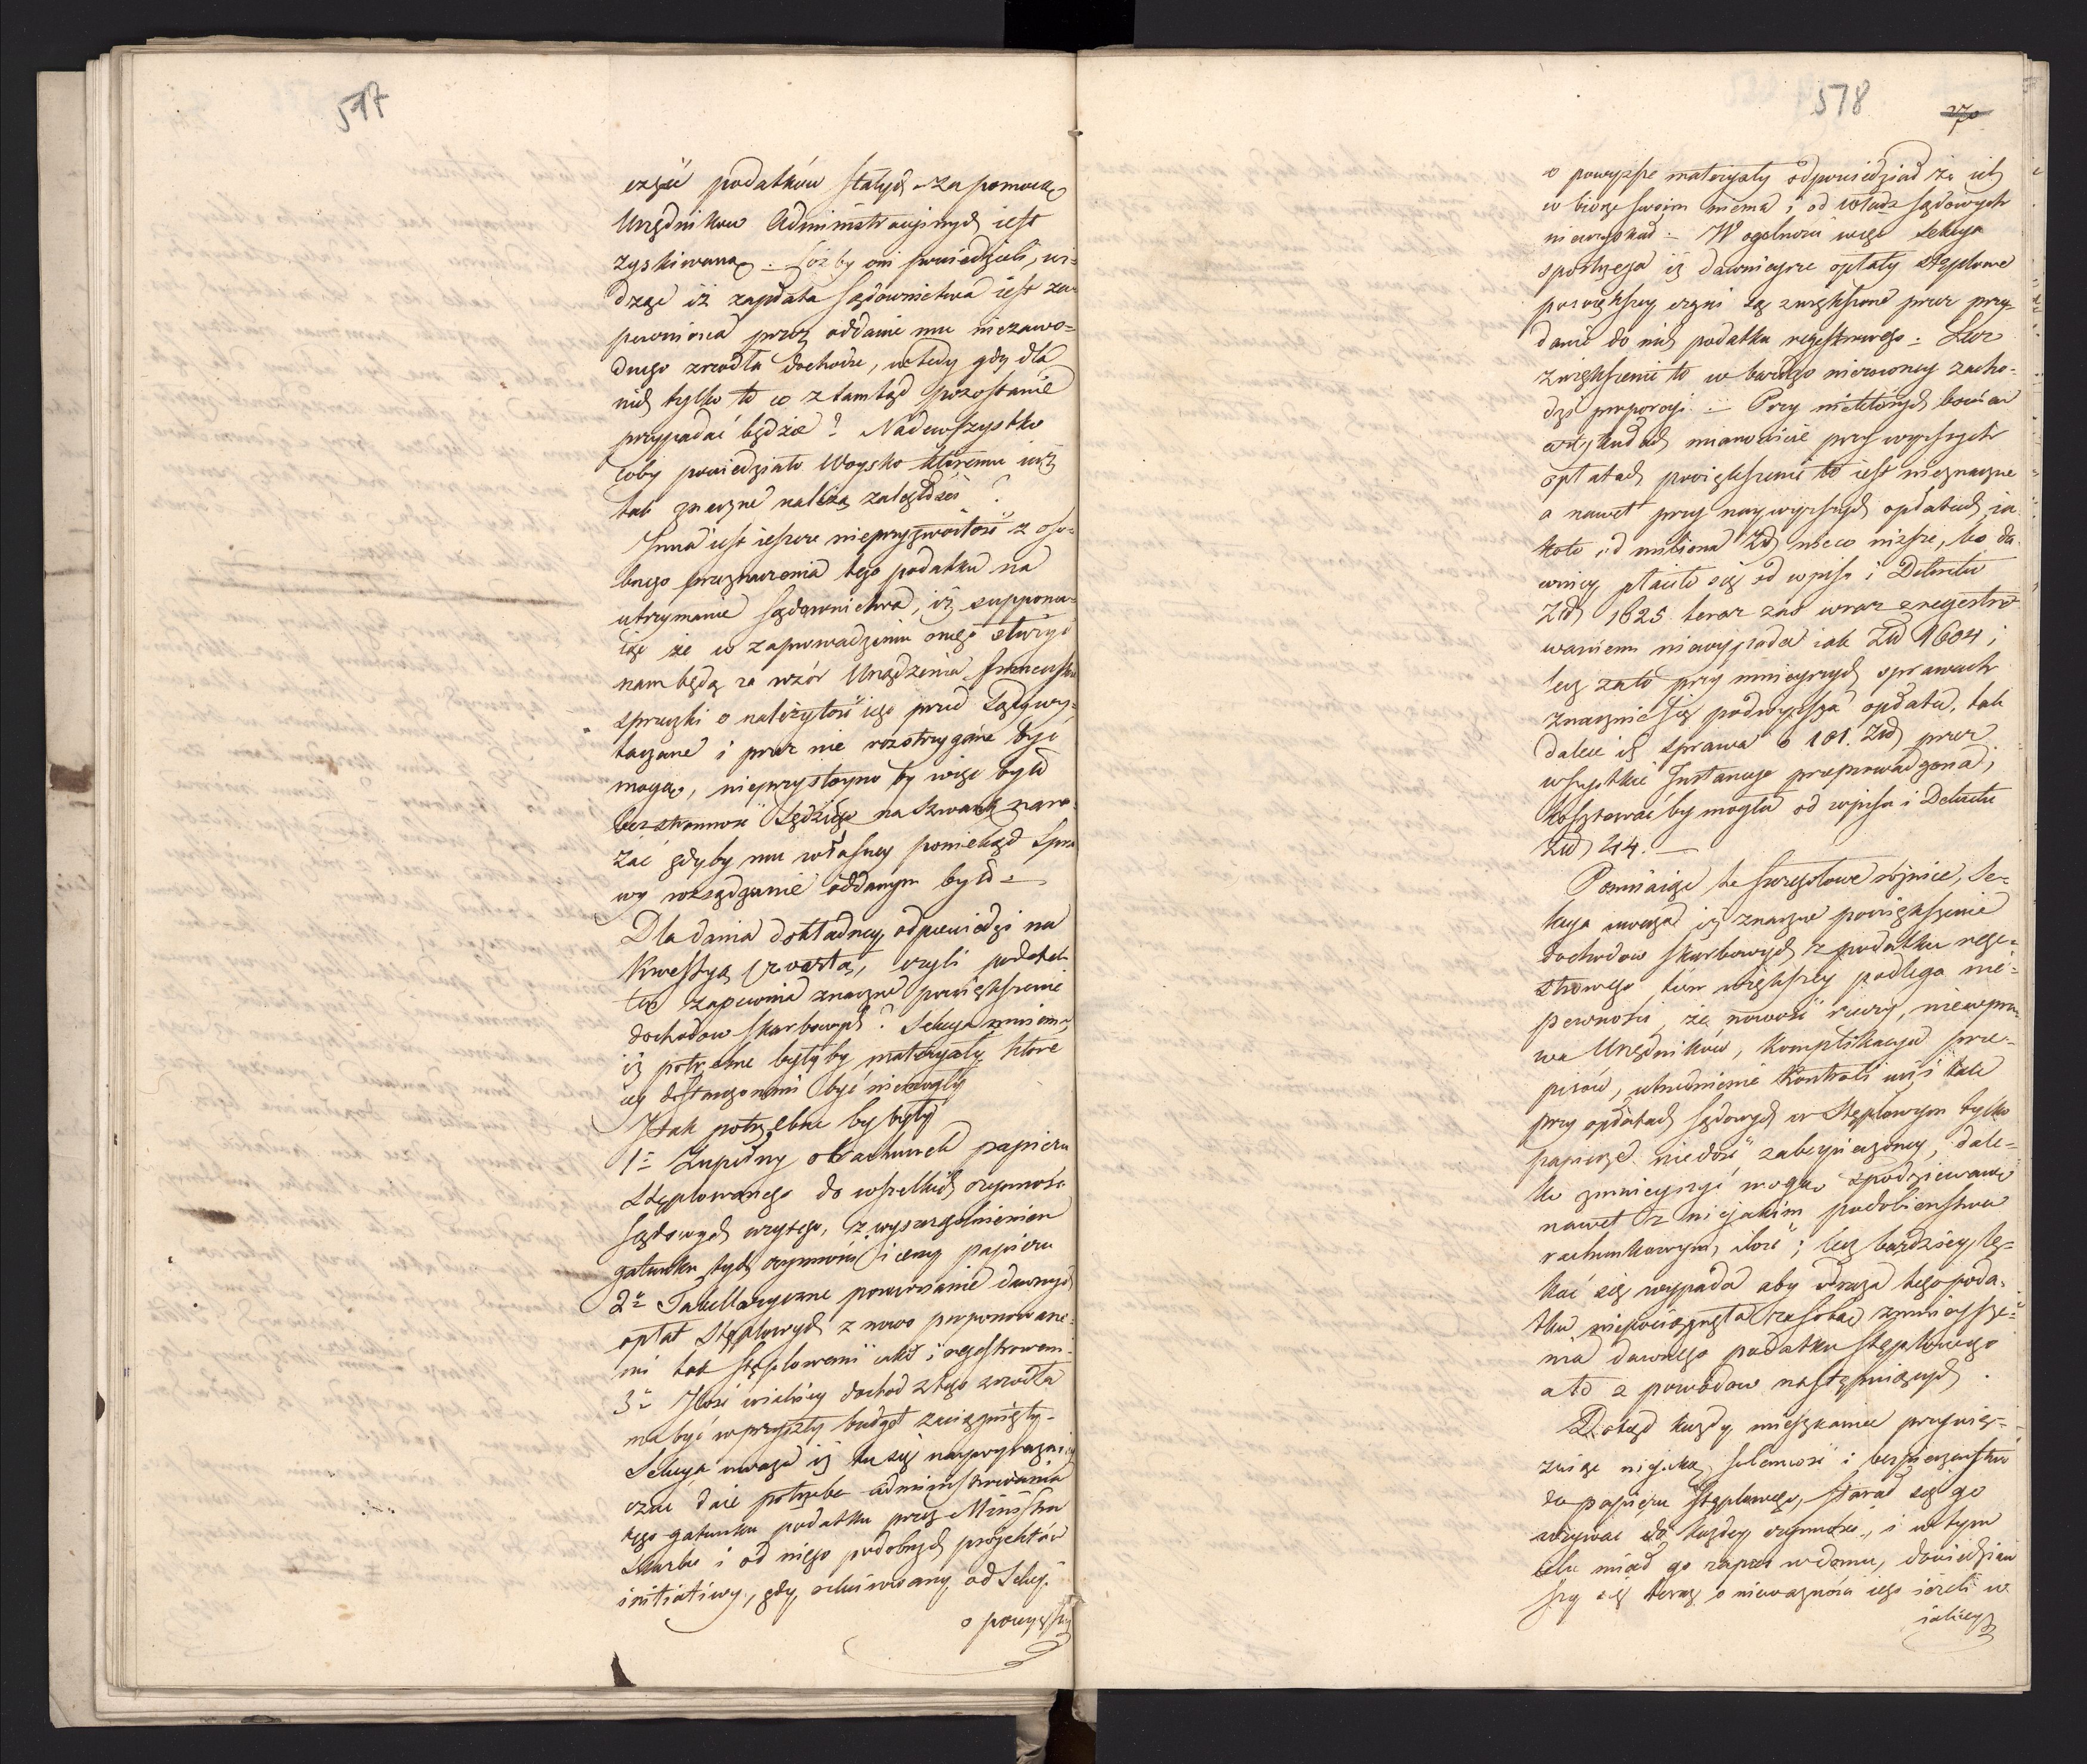 517
część podatków stałych za pomocką
Urzędnikow Administracyjnych iest
zyskiwana. Cóż by oni powiedzieli, wi=
dząc iż zapłata sądownictwa iest za=
pewniona przez oddanie mu niezawo=
dnego zrzodła dochodu, wtedy gdy dla
nich tylko to co ztamtąd pozostanie
przypadać będzie? Nadewszystko
coby powiedziało Woysko któremu iuż
tak znaczne należą zaległości?
Inna iest ieszcze nieprzyzwoitość z oso=
bnego przeznaczenia tego podatku na
utrzymanie sądownictwa, iż suppono=
iąc że w zaprowadzeniu onego służyć
nam będą za wzór Urządzenia francuskie
sprzeczki o należytość iego przed Sądy wy=
taczane i przez nie rozstrzygane być
mogą, nieprzystoyno by więc było
bezstronność Sędziego na szwank nara=
żać gdyby mu własney poniekąd Spra
wy rozsądzanie oddanym było.
Dla dania dokładney odpowiedzi na
Kwestyą czwartą, czyli podatek
ten zapewnia znaczne powiększenie
dochodow skarbowych? Sekcya mniema
iż potrzebne byłyby materyały które
iey dostarczonemi być niemogły
I tak potrzebne by były
1o Zupełny obrachunek papieru
Stęplowanego do wszelkich czynności
sądowych użytego, z wyszczególnieniem
gatunku tych czynności i ceny papieru
2o Tabellaryczne porównanie dawnych
opłat Stęplowych z nowo proponowane=
mi tak stęplowemi iako i regestrowem
3o Ilość wiakiey dochod z tego zrzodła
ma być w przyszły budżet zaciągnięty.
Sekcya uważa iż tu się naywyraźniey
czuć daie potrzeba administrowania
tego gatunku podatku przez Ministra
Skarbu i od niego podobnych proiektów
initiatiwy, gdy rekwirowany od Sekcyi
o powyższe

578
270
o powyższe materyały odpowiedział że ich
w biórze swoim niema i od władz sądowych
nieuzyskał. W ogólności więc Sekcya
spostrzega iż dawnieysze opłaty stęplowe
po większey części są zwiększone przez przy=
danie do nich podatku regestrowego: Lecz
zwiększenie to w bardzo nierówney zacho=
dzi proporcyi. Przy niektórych bowiem
artykułach mianowicie przy wyższych
opłatach powiększenie to iest nieznaczne
a nawet przy naywyższych opłatach, ia
koto od miliona Złch nieco niższe, bo da
wniey płaciło się od wpisu i Dekretu
Złch 1625. teraz zaś wraz z regestro=
waniem niewypada iak Złch 1604;
lecz zato przy mnieyszych sprawach
znacznie się podwyższa opłata, tak
dalece iż sprawa o 101. Złch przez
wszystkie Instancye przeprowadzona,
kosztować by mogła od wpisu i Dekretu
Złch 44.
Pomiiaiąc te szczegółowe różnice, Se=
kcya uważa iż znaczne powiększenie
dochodow skarbowych z podatku rege=
strowego tém większey podlega nie=
pewności, że nowość rzeczy, niewpra
wa Urzędników, komplikacya prze=
pisów, utrudnienie Kontroli iuż i tak
przy opłatach sądowych w Stęplowym tylko
papierze niedość zabezpieczoney, dale=
ko zmnieyszyć mogą spodziewaną
nawet z nieiakim podobieństwem
rachunkowym, ilość; lecz bardziey lę=
kać się wypada aby odraza tego poda=
tku niepociągnęła za sobą zmnieysze=
nia dawnego podatku stęplowego
a to z powodow następuiących.
Dotąd każdy mieszkaniec przywię=
zuiąc nieiaką solenność i bezpieczeństwo
do papieru Stęplowego, starał się go
używać do każdey czynności, i w tym
celu miał go zapas w domu, dowiedziaw
szy się teraz o nieważności iego ieżeli w
iakiey